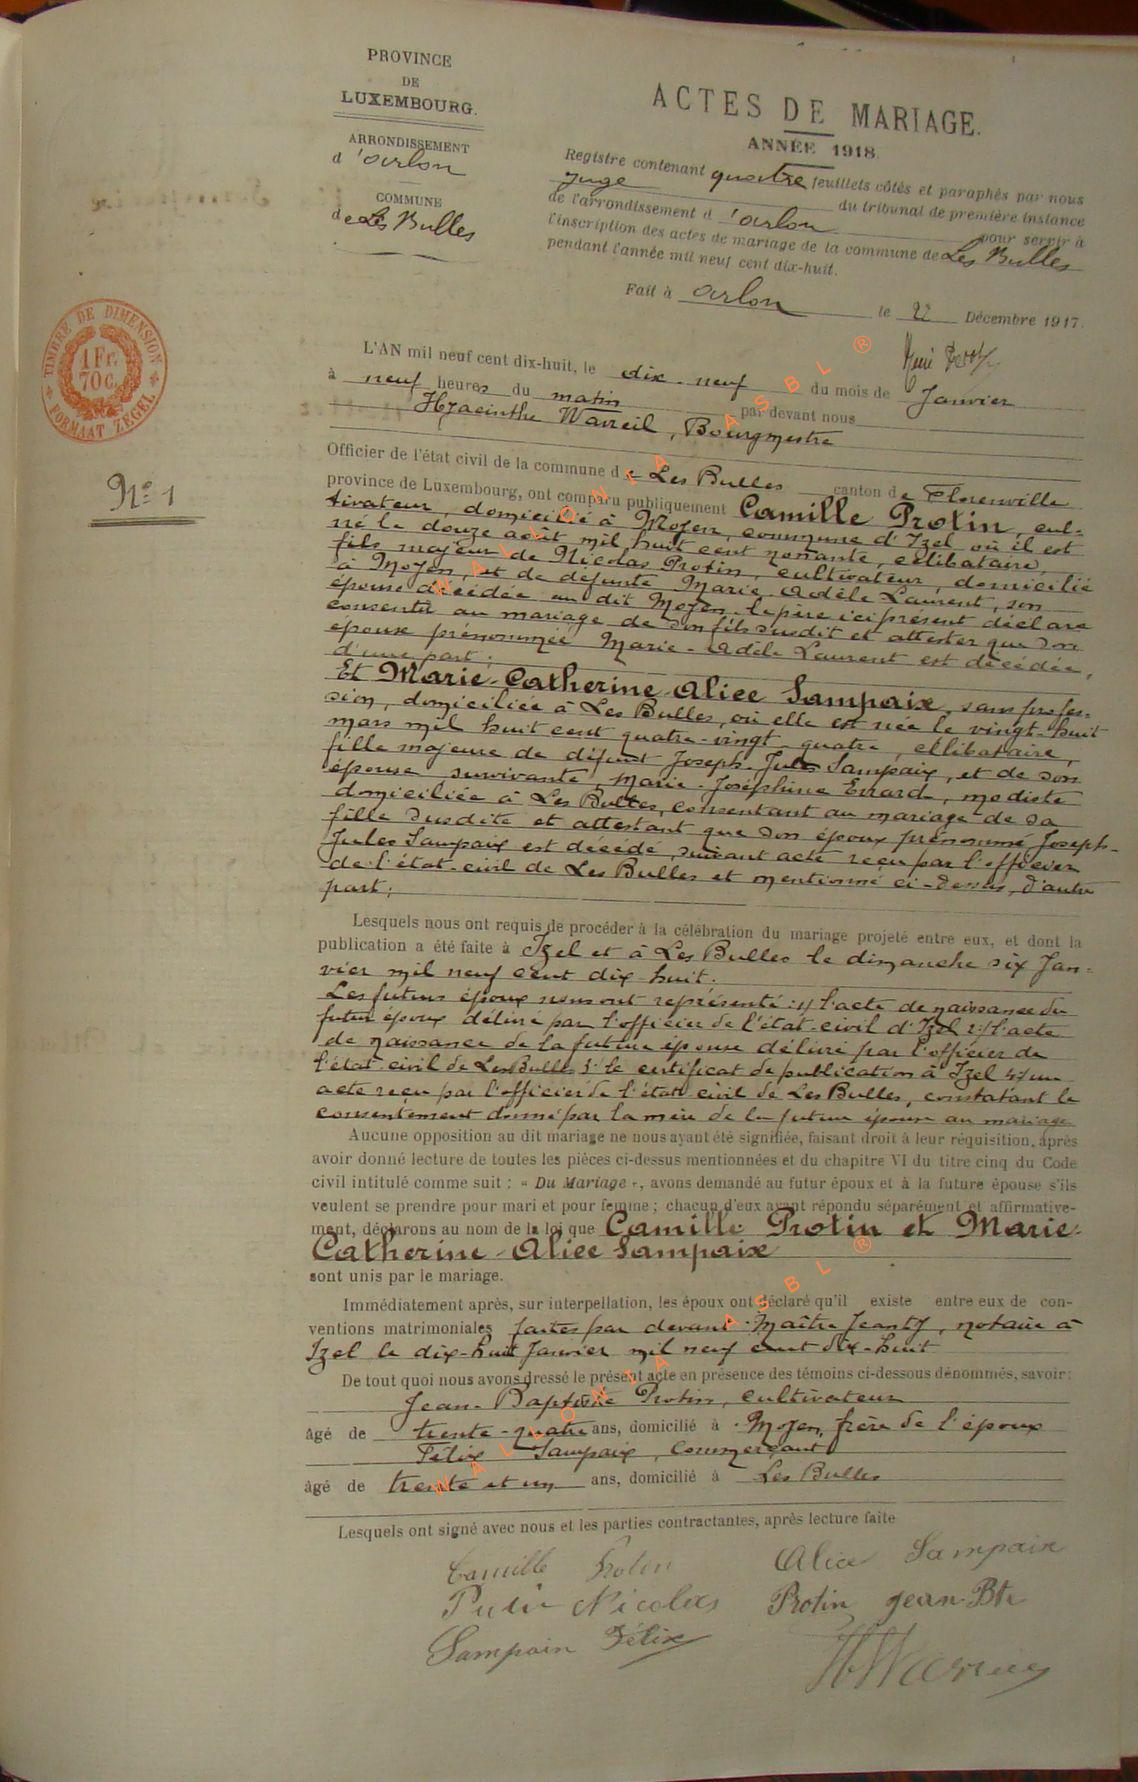 PROVINCE
DE
LUXEMBOURG.
ARRONDISSEMENT
d'Arlon
COMMUNE
de Les Bulles
ACTES DE MARIAGE.
ANNÉE 1918.
Registre contenant quatre feuillets côtés et paraphés par nous
juge du tribunal de première instance
de l'arrondissement d'Arlon pour servir à
l'inscription des actes de mariage de la commune de Les Bulles
pendant l'année mil neuf cent dix-huit.
Fait à Arlon le 22 Décembre 1917.
TIMBRE DE DIMENSION
1 Fr.
70 C.
FORMAAT ZEGEL
N° 1
L'AN mil neuf cent dix-huit, le dix-neuf du mois de Janvier
à neuf heures du matin par devant nous
Hyacinthe Bourgmestre
Officier de l'état civil de la commune de Les Bulles canton de Florenville
province de Luxembourg, ont comparu publiquement Camille Protin, cul-
tivateur, domicilié à Moyen, commune d'Izel où il est
né le douze août mil huit cent nonante, célibataire,
fils majeur de Nicolas Protin, cultivateur, domicilié
à Moyen, et de défunte Marie-Adèle Laurent, son
épouse décédée au dit Moyen, le père ici présent déclare
consentir au mariage de son fils susdit et attester que son
épouse prénommée Marie-Adèle Laurent est décédée,
d'une part;
Et Marie-Catherine-Alice Sampaix, sans profes-
sion, domiciliée à Les Bulles, où elle est née le vingt-huit
mars mil huit cent quatre-vingt-quatre, célibataire,
fille majeure de défunt Joseph-Jules Sampaix, et de son
épouse survivante, Marie-Joséphine Errard, modiste
domiciliée à Les Bulles, consentant au mariage de sa
fille susdite et attestant que son époux prénommé Joseph-
Jules Sampaix est décédé, suivant acte reçu par l'officier
de l'état-civil de Les Bulles et mentionné ci-dessus, d'autre
part;
Lesquels nous ont requis de procéder à la célébration du mariage projeté entre eux, et dont la
publication a été faite à Izel et à Les Bulles le dimanche six Jan-
vier mil neuf cent dix-huit.
Les futurs époux nous ont représenté: 1/ l'acte de naissance du
futur époux délivré par l'officier de l'état-civil d'Izel 2/ l'acte
de naissance de la future épouse délivré par l'officier de
l'état-civil de Les Bulles 3° le certificat de publication à Izel 4/ un
acte reçu par l'officier de l'état civil de Les Bulles, constatant le
consentement donné par la mère de la future épouse au mariage
Aucune opposition au dit mariage ne nous ayant été signifiée, faisant droit à leur réquisition, après
avoir donné lecture de toutes les pièces ci-dessus mentionnées et du chapitre VI du titre cinq du Code
civil intitulé comme suit : « Du Mariage », avons demandé au futur époux et à la future épouse s'ils
veulent se prendre pour mari et pour femme ; chacun d'eux ayant répondu séparément et affirmative-
ment, déclarons au nom de la loi que Camille Protin et Marie-
Catherine-Alice Sampaix
sont unis par le mariage.
Immédiatement après, sur interpellation, les époux ont déclaré qu'il existe entre eux de con-
ventions matrimoniales faites par devant Maître Jeanty, notaire à
Izel le dix-huit Janvier mil neuf cent dix-huit
De tout quoi nous avons dressé le présent acte en présence des témoins ci-dessous dénommés, savoir:
Jean-Baptiste Protin, cultivateur
âgé de trente-quatre ans, domicilié à Moyen, frère de l'époux
Félix Sampaix, commerçant
âgé de trente et un ans, domicilié à Les Bulles
Lesquels ont signé avec nous et les parties contractantes, après lecture faite
Camille Protin Alice Sampaix
Nicolas Protin Jean-Bte
Sampaix Félix
WALLONIA ASBL ®
WALLONIA ASBL ®